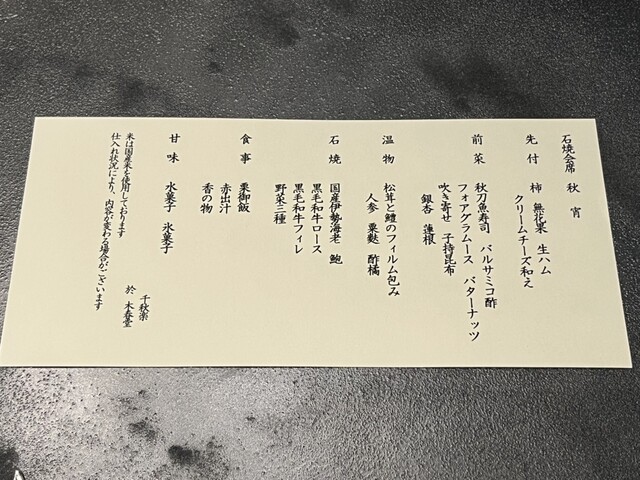 石焼会席 秋宵
先付 柿 無花果 生ハム
クリームチーズ和え
前菜 秋刀魚寿司 バルサミコ酢
フォアグラムース バターナッツ
吹き寄せ 子持昆布
銀杏 蓮根
温物 松茸と鱧のフィルム包み
人参 粟麩 酢橘
石焼 国産伊勢海老 鮑
黒毛和牛ロース
黒毛和牛フィレ
野菜三種
食事 栗御飯
赤出汁
香の物
甘味 水菓子 氷菓子
米は国産米を使用しております
仕入れ状況により、内容が変わる場合がございます
千秋楽
於 木春堂